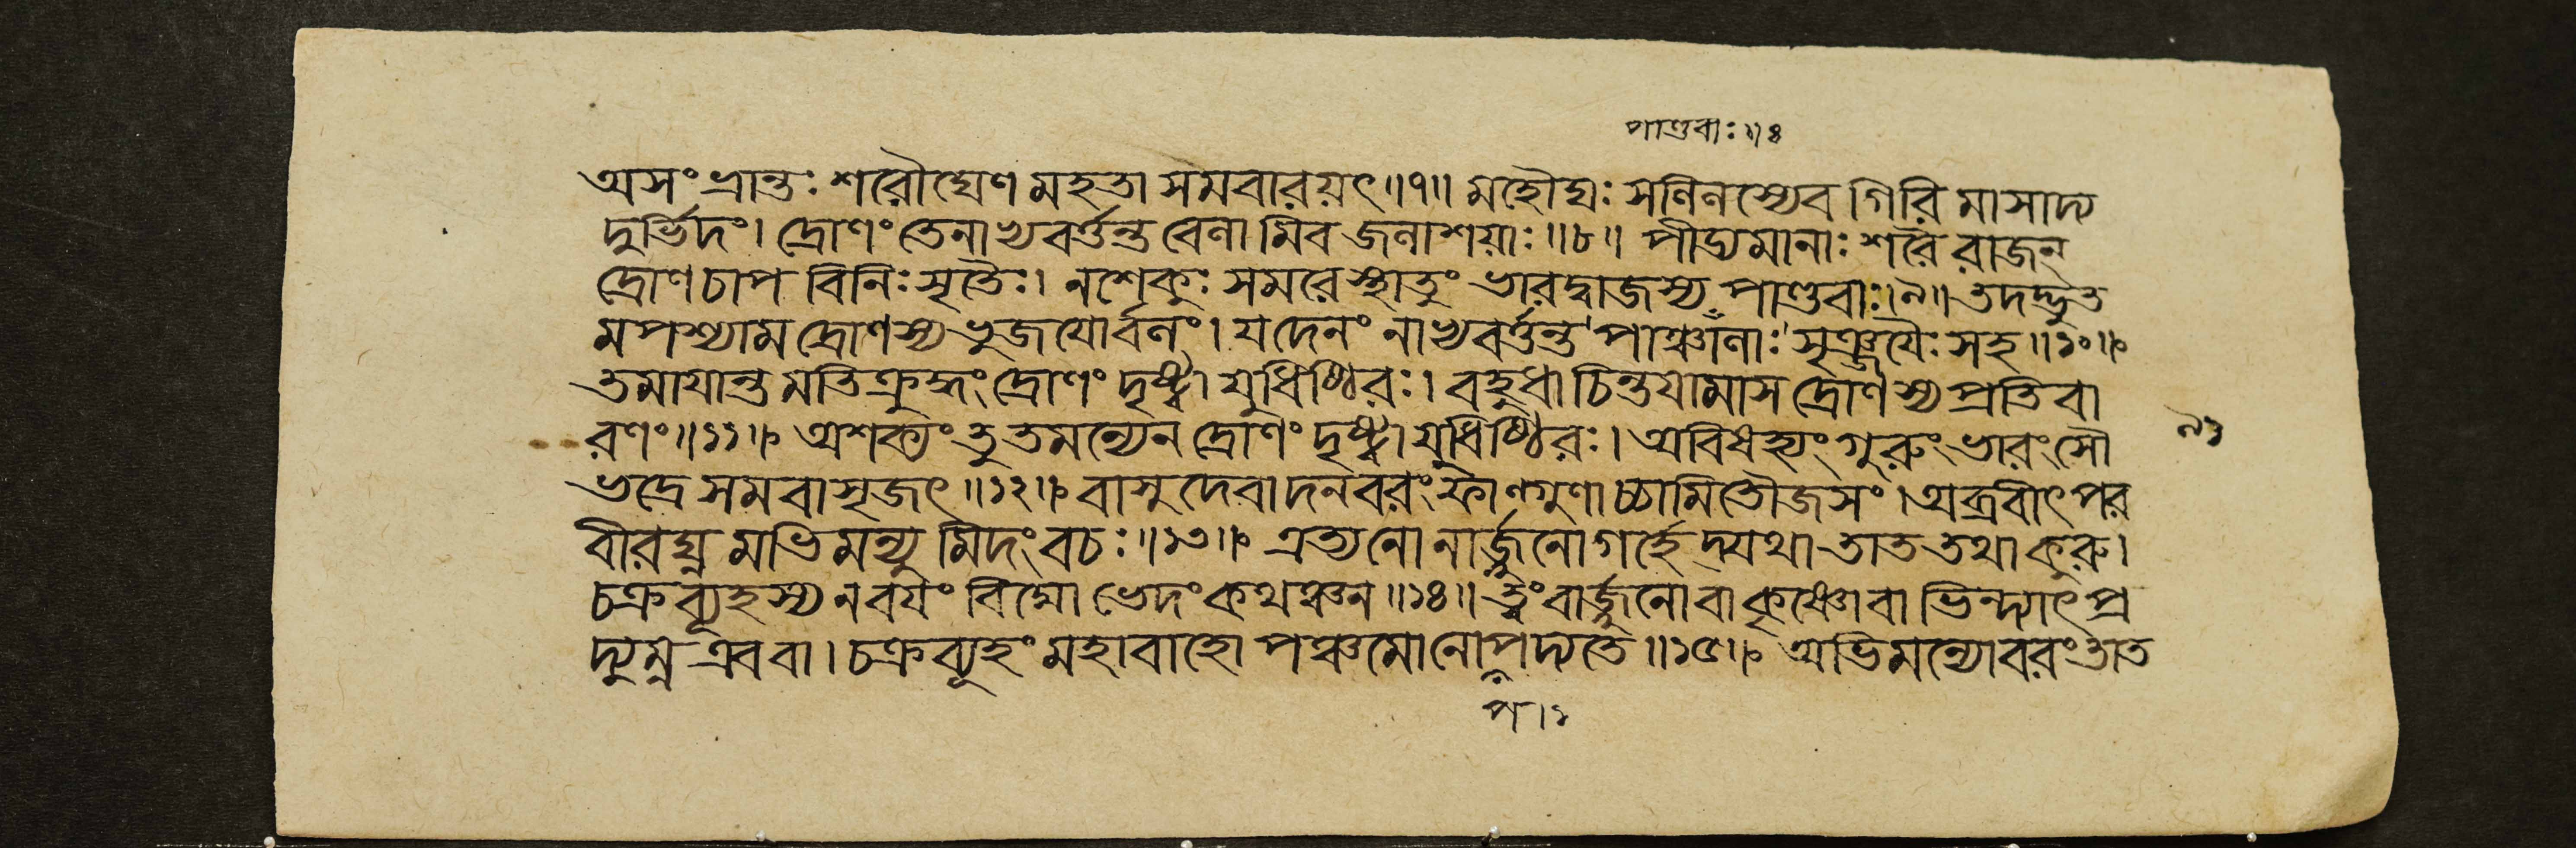 পাণ্ডবাঃ॥৪
অসংভ্রান্তঃ শরৌঘেণ মহতা সমবারয়ৎ॥৭॥ মহৌঘঃ সলিলস্যেব গিরি মাসাদ্য
দুর্ভিদং। দ্রোণং তেনাভ্যবর্ত্তন্ত বেলা মিব জলাশয়াঃ॥৮॥ পীড্যমানাঃ শরৈ রাজন্
দ্রোণচাপ বিনিঃসৃতৈঃ। নশেকুঃ সমরে স্থাতুং ভারদ্বাজস্য পাণ্ডবাঃ॥৯॥ তদদ্ভুত
মপশ্যাম দ্রোণস্য ভুজযোর্বলং। যদেনং নাভ্যবর্ত্তন্ত পাঞ্চালাঃ সৃঞ্জযৈঃ সহ॥১০॥
তমাযান্ত মতিক্রুদ্ধং দ্রোণং দৃষ্ট্বা যুধিষ্ঠিরঃ। বহুধা চিন্তযামাস দ্রোণস্য প্রতিবা
রণং॥১১॥ অশক্যং তু তমন্যেন দ্রোণং দৃষ্ট্বা যুধিষ্ঠিরঃ। অবিষহ্যং গুরুং ভারং সৌ
ভদ্রে সমবাসৃজৎ॥১২॥ বাসুদেবাদনবরং ফাল্গুণাচ্চামিতৌজসং। অব্রবীৎ পর
বীরঘ্ন মভিমন্যু মিদং বচঃ॥১৩॥ এত্যনো নার্জ্জুনো গর্হেদ্যথা তাত তথা কুরু।
চক্রব্যূহস্য নবযং বিদ্মো ভেদং কথঞ্চন॥১৪॥ ত্বং বার্জ্জুনো বা কৃষ্ণো বা ভিন্দ্যাৎ প্র
দ্যুম্ন এব বা। চক্রব্যূহং মহাবাহো পঞ্চমোনোপদ্যতে॥১৫॥ অভিমন্যো বরং তাত
প।১